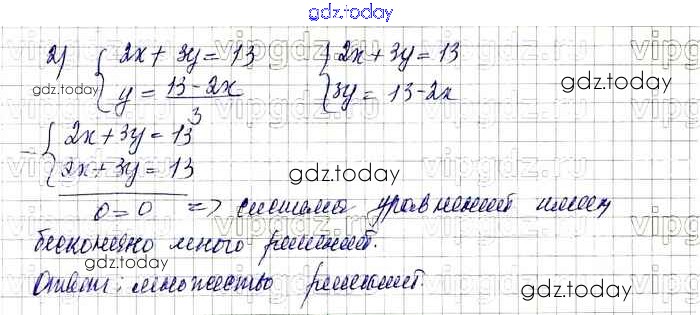 gdz.today
2) { 2x + 3y = 13 { 2x + 3y = 13
{ y = (13 - 2x)/3 { 3y = 13 - 2x
gdz.today gdz.today
- { 2x + 3y = 13
{ 2x + 3y = 13
gdz.today
0 = 0 => система уравнений имеет
бесконечно много решений.
gdz.today
Ответ: множество решений.
gdz.today